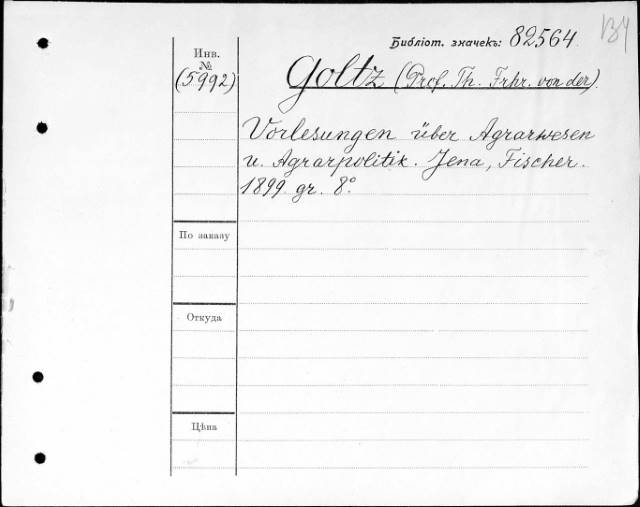 Библіот. значекъ: 82564.
Инв.
№
(5992)
Goltz (Prof. Th. Frhr. von der).
Vorlesungen über Agrarwesen
u. Agrarpolitik. Jena, Fischer.
1899. gr. 8°.
По заказу
Откуда
Цѣна